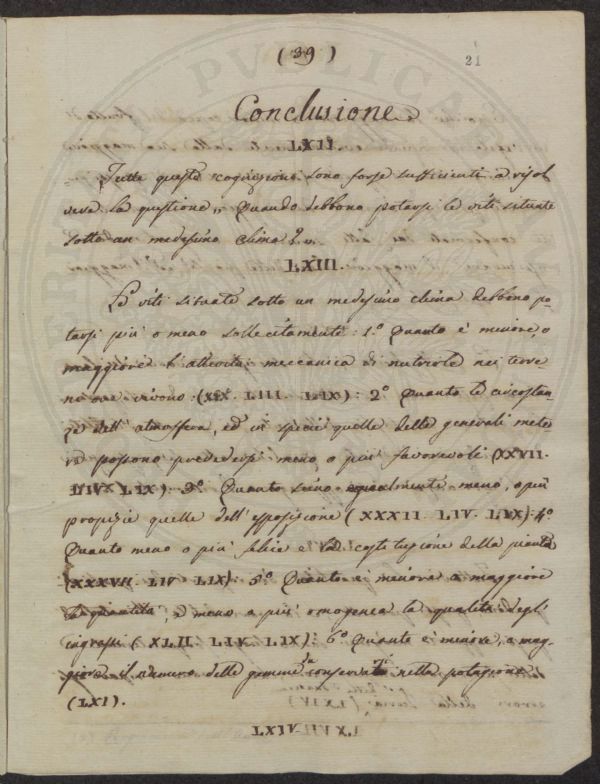 ( 39 )
21
Conclusione
LXII.
Tutte queste cognizioni sono forse sufficienti a risol
vere la questione „ Quando debbono potarsi le viti situate
sotto un medesimo clima? „
LXIII.
Le viti situate sotto un medesimo clima debbono po
tarsi più o meno sollecitamente: 1.º Quanto è minore, o
maggiore l'attività meccanica di nutrirle nei terre
ni ove vivono: (XIX. LIII. LIX): 2º Quanto le circostan
ze dell'atmosfera, ed in specie quelle delle generali mete
re possono prevedersi meno, o più favorevoli (XXVII.
LIV. LIX) 3º Quanto sieno egualmente meno, o più
propizie quelle dell'esposizione (XXXII. LIV. LIX) 4º
Quanto meno o più felice è la costituzione della pianta
(XXXVII. LIV. LIX): 5º Quanto è minore o maggiore
la quantità, e meno o più omogenea la qualità degl'
ingrassi (XLII. LIV. LIX): 6º Quanto è minore, o mag-
giore il numero delle gemme conservate nella potagione
(LXI).
LXIV.